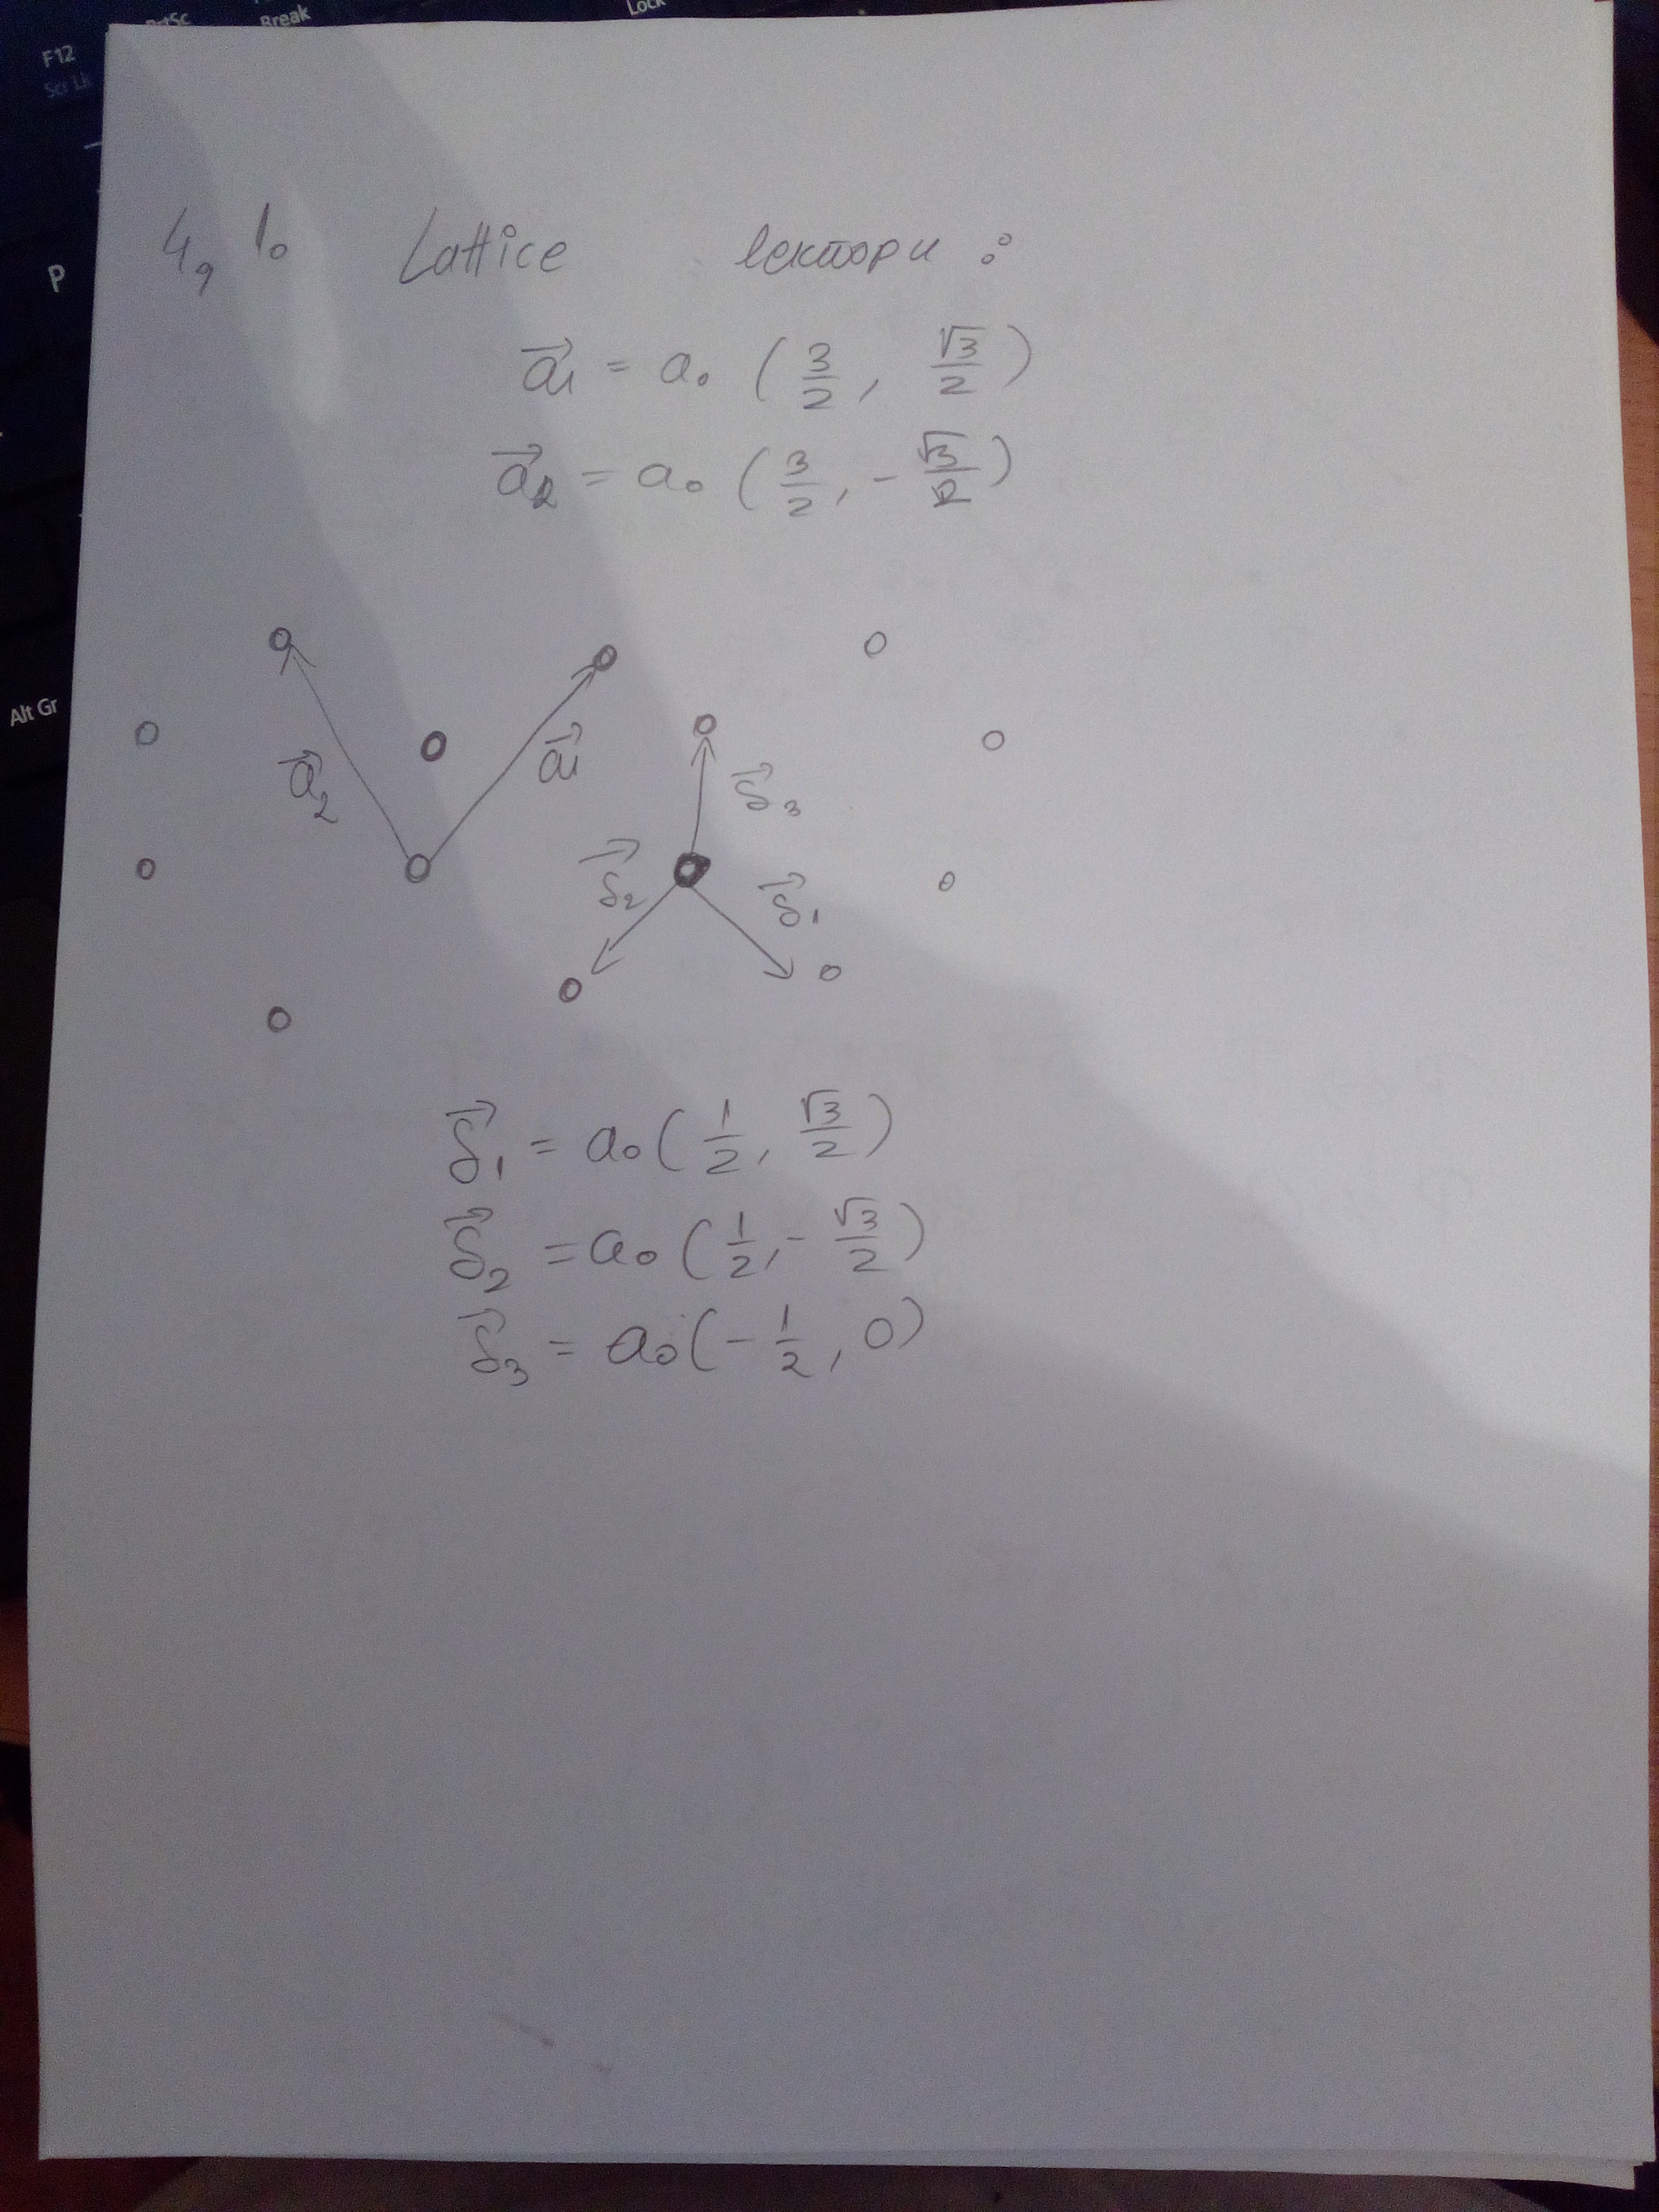 F12
Break
Lock
Scr Lk
P
Alt Gr
4, 1. Lattice вектори :
a⃗1 = a₀ (3/2, √3/2)
a⃗2 = a₀ (3/2, -√3/2)
a⃗2
a⃗1
δ⃗3
δ⃗2
δ⃗1
δ⃗1 = a₀(1/2, √3/2)
δ⃗2 = a₀(1/2, -√3/2)
δ⃗3 = a₀(-1/2, 0)